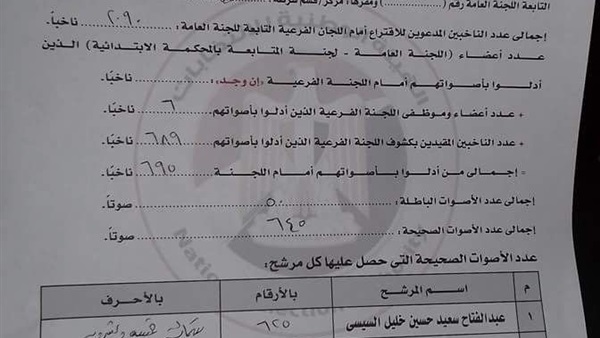 التابعة اللجنة العامة رقم (............) ومقرها: مركز/قسم شرطة:
إجمالى عدد الناخبين المدعوين للاقتراع أمام اللجان الفرعية التابعة للجنة العامة: ٢٠٩٠ ناخباً.
عدد أعضاء (اللجنة العامة - لجنة المتابعة بالمحكمة الابتدائية) الذين
أدلوا بأصواتهم أمام اللجنة الفرعية (إن وجد): ............ ناخبًا.
+ عدد أعضاء وموظفى اللجنة الفرعية الذين أدلوا بأصواتهم ٦ ناخبًا.
+ عدد الناخبين المقيدين بكشوف اللجنة الفرعية الذين أدلوا بأصواتهم ٦٨٩ ناخبًا.
= إجمالى من أدلوا بأصواتهم أمام اللجنة ٦٩٥ ناخبًا.
إجمالى عدد الأصوات الباطلة: ٥٠ صوتاً.
إجمالى عدد الأصوات الصحيحة: ٦٤٥ صوتاً.
عدد الأصوات الصحيحة التى حصل عليها كل مرشح:
م اسم المرشح بالأرقام بالأحرف
١ عبدالفتاح سعيد حسين خليل السيسى ٦٢٥